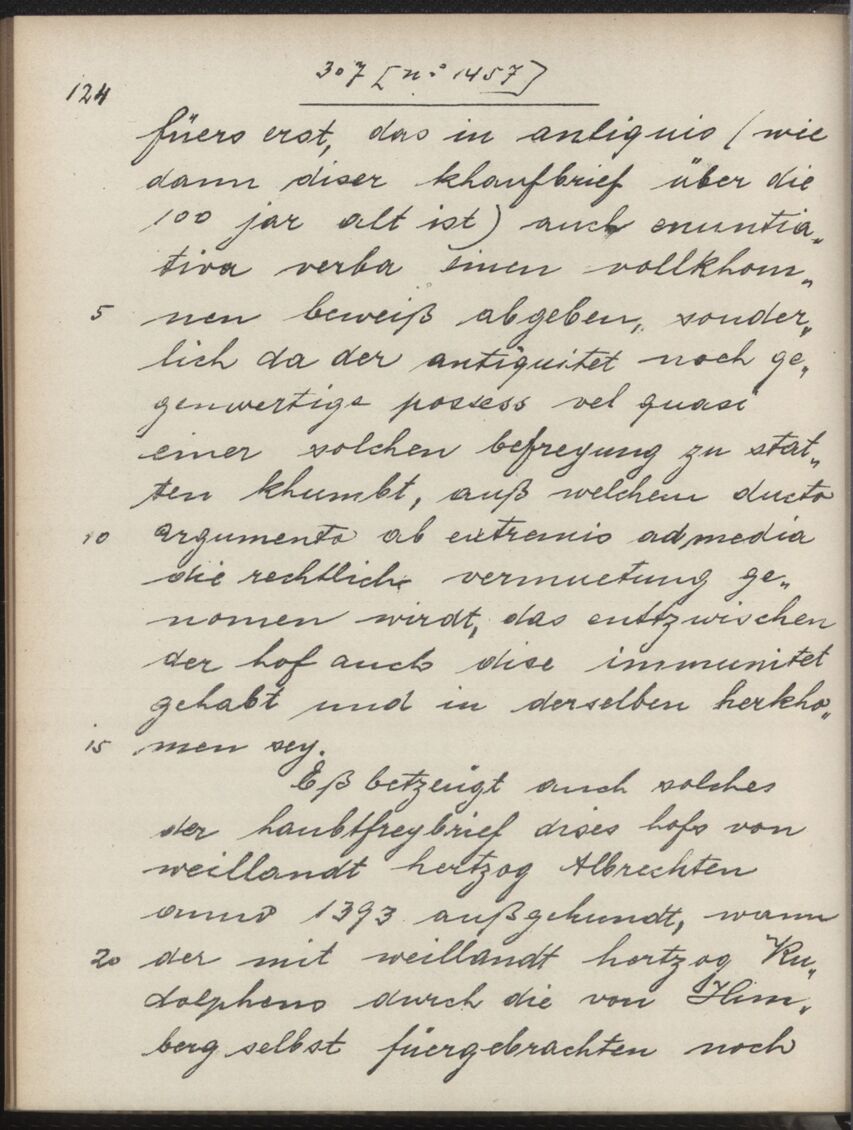 307 [n° 1457]
124
füers erst, das in antiquis (wie
dann diser khaufbrief über die
100 jar alt ist) auch enuntia„
tiva verba einen vollkhom„
5 nen beweiß abgeben, sonder„
lich da der antiquitet noch ge„
genwertige possess vel quasi
einer solchen befreyung zu stat„
ten khumbt, auß welchem ducto
10 argumento ab extremis ad media
die rechtliche vermuetung ge„
nomen wirdt, das entzwischen
der hof auch dise immunitet
gehabt und in derselben herkho„
15 men sey.
Eß betzeugt auch solches
der haubtfreybrief dises hofs von
weillandt hertzog Albrechten
anno 1393 außgehundt, wann
20 der mit weillandt hertzog Ru„
dolphens durch die von Him„
berg selbst füergebrachten noch